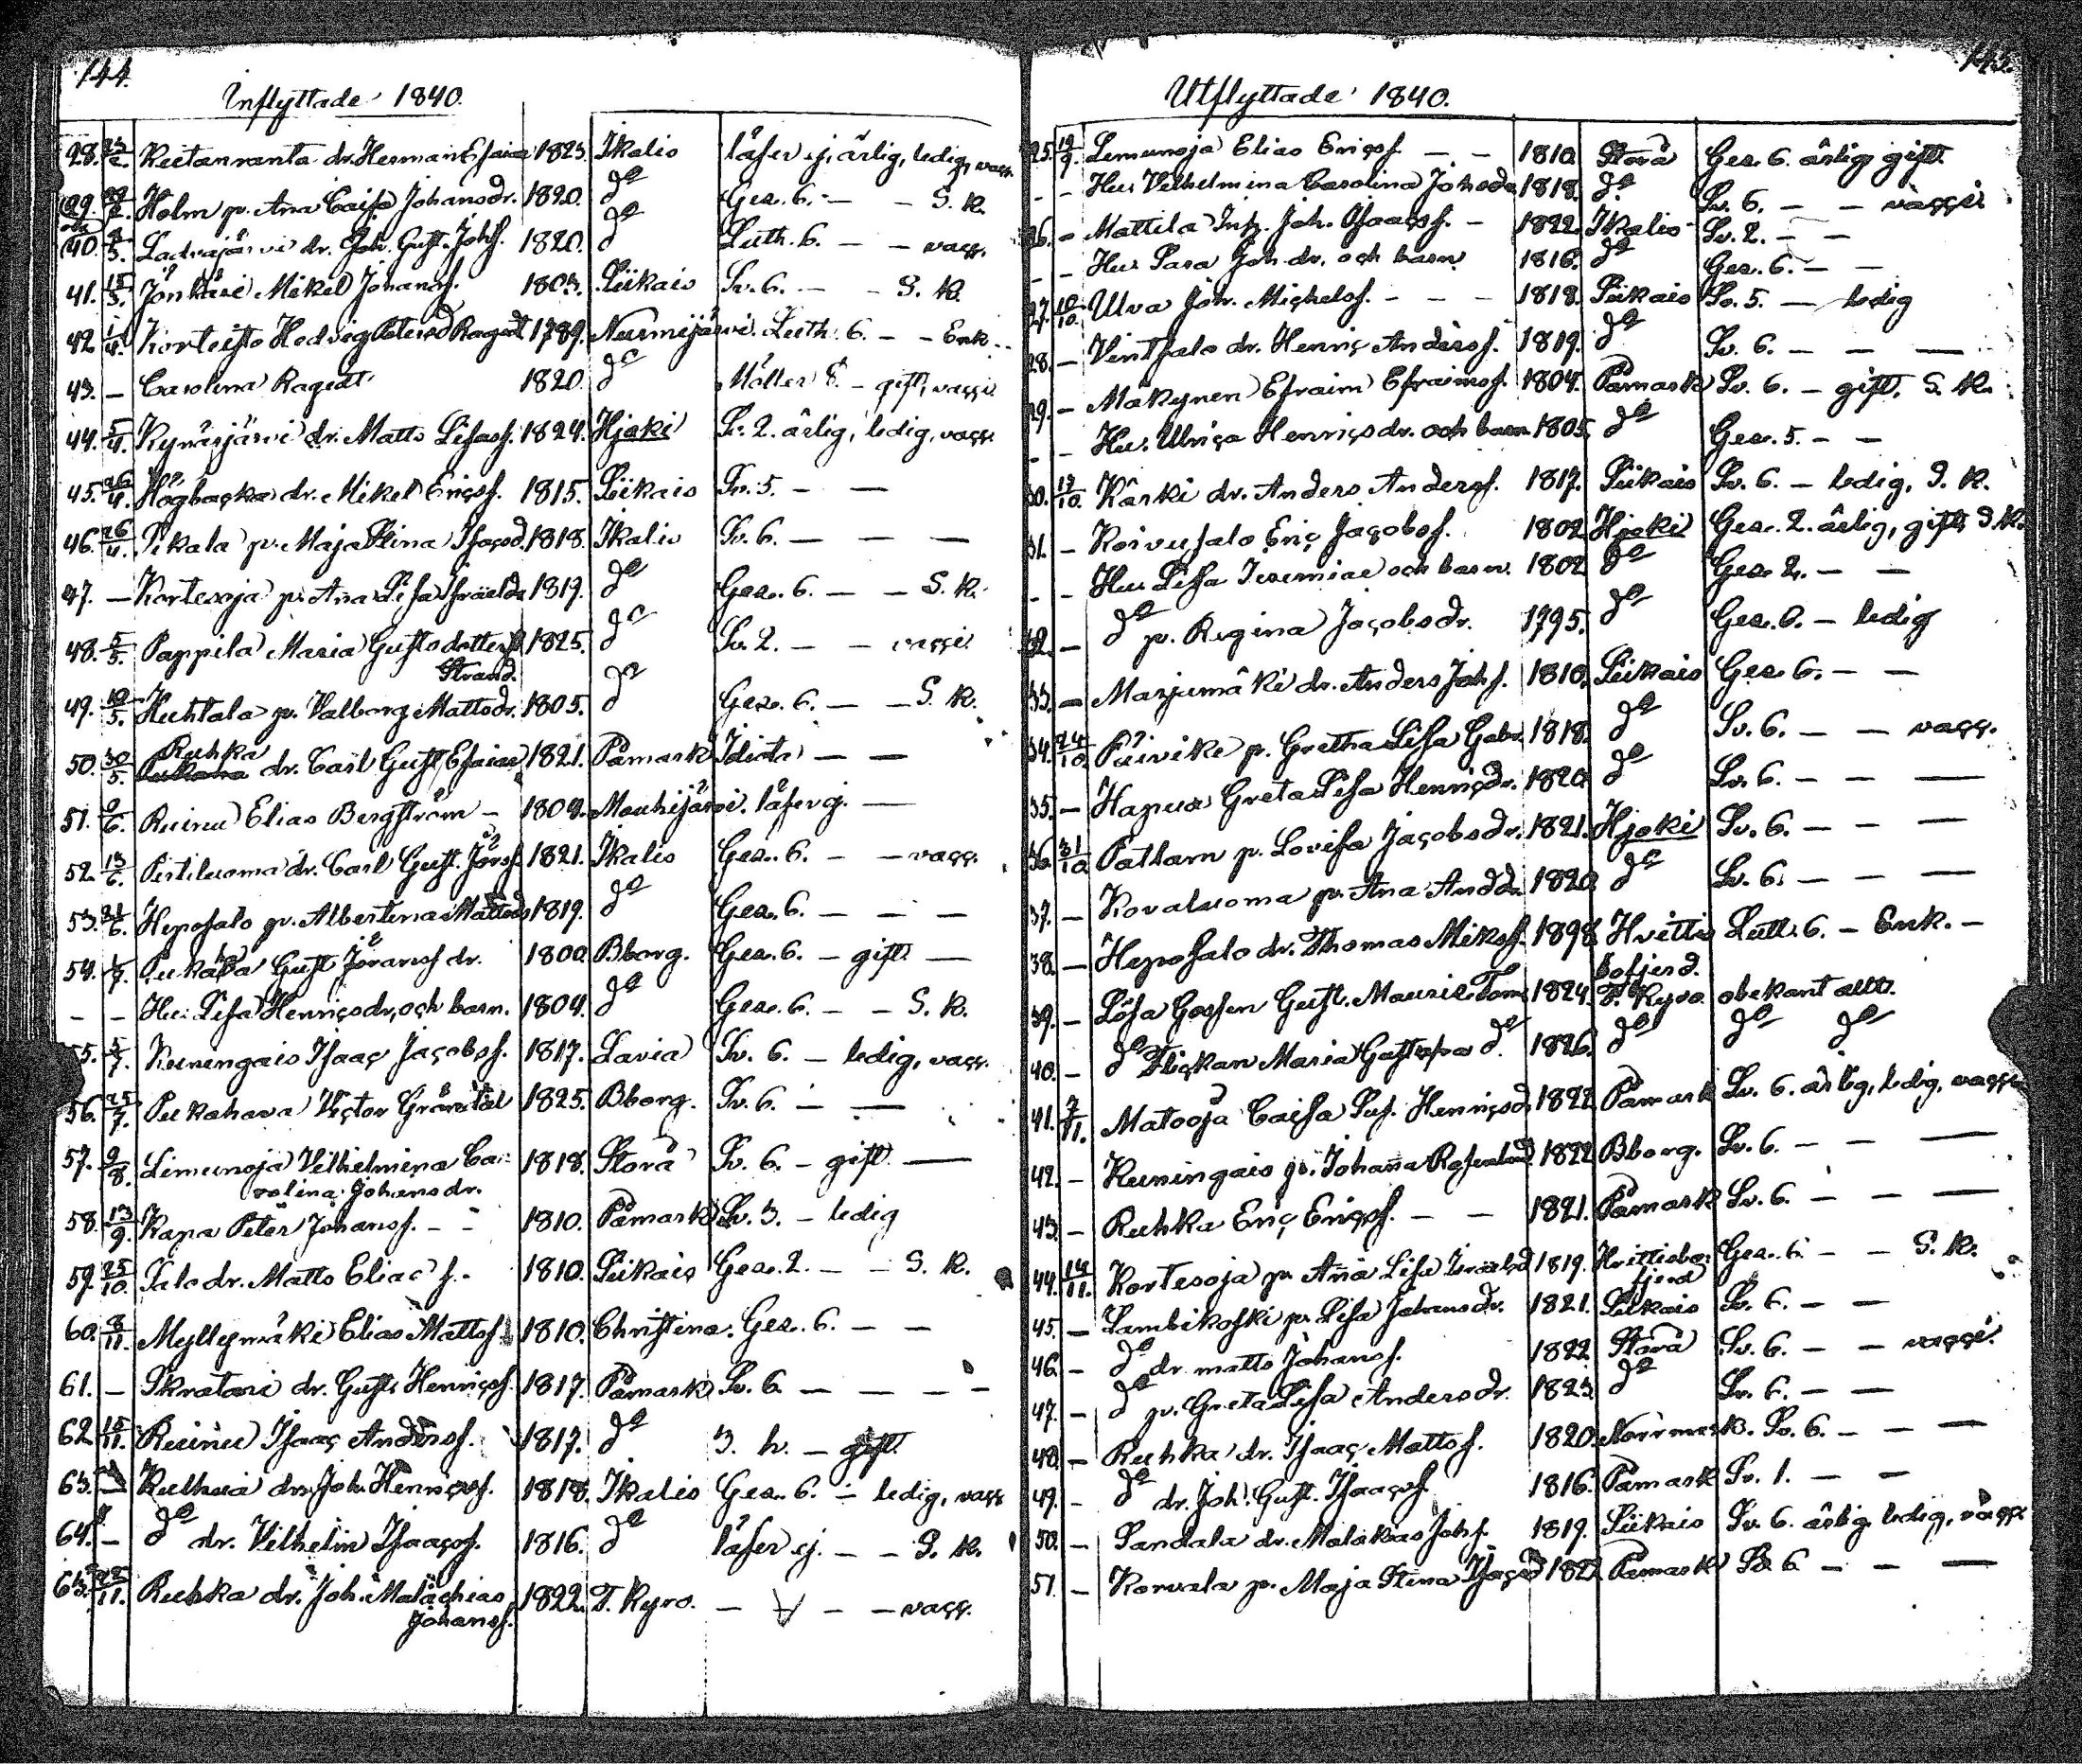 144.
Inflyttade 1840.
28. 23/2. Keitanranta dr. Herman Esaia 1823. Ikalis läser ej, ärlig, ledig, vacc.
29. Holm p. Ana Caisa Johansdr. 1820. do Gez. 6. - - S. K.
40. Ladvajärvi dr. Joh. Gust. Johs. 1820. do Luth. 6. - - vacc.
41. 15/3. Mikel Johans. 1803. Siikais Sv. 6. - - S. K.
42. 1/4. Korteisto Hedvig Ragvdt 1789. Nurmijärvi. Luth. 6. - - Enk.
43. - Carolina Ragvdt 1820. do Möller 8. - gift, vacci
44. 5/4. Kynäsjärvi dr. Matts Lisas. 1824. Hjoki Sv. 2. ärlig, ledig, vacc.
45. 26/4. Högbacka dr. Mikel Ericss. 1815. Siikais Sv. 5. - -
46. 26/4. Pikala p. Maja Stina Isacsd. 1818. Ikalis Sv. 6. - - -
47. - Kortesoja p. Ana Lisa Israelsdr 1819. do Gez. 6. - - S. K.
48. 5/5. Pappila Maria Gustsdotter 1825. do Sv. 2. - - vacci
Strand.
49. 10/5. Huhtala p. Valborg Mattsdr. 1805. do Gez. 6. - - S. K.
Ruhka
50. 30/5. dr. Carl Gust. Esaias 1821. Påmark Idiota - -
51. 9/6. Ruinu Elias Bergström - 1804. Mouhijärvi. läser ej. -
52. 13/6. Pertiluoma dr. Carl Gust. Jörss. 1821. Ikalis Gez. 6. - - vacc.
53. 21/6. Heposalo p. Albertina Mattsdr 1819. do Gez. 6. - - -
54. 1/7. Gust. Jöranss dr. 1800. Bborg. Gez. 6. - gift -
- - Hu. Lisa Henricsdr. och barn. 1804. do Gez. 6. - - S. K.
55. 5/7. Kuningais Isaac Jacobss. 1817. Lavia Sv. 6. - ledig, vacc.
56. 25/7. Pukahava Victor Gröndal 1825. Bborg. Sv. 6. - -
57. 9/8. Limunoja Vilhelmina Ca- 1818. Storå Sv. 6. - gift -
rolina Johansdr.
58. 13/9. Kapa Peter Johanss. - - 1810. Påmark Sv. 3. - ledig
59. 25/10. Salo dr. Matts Elias s. - 1810. Siikais Gez. 2. - - S. K.
60. 8/11. Myllymäki Elias Mattss. 1810. Christina. Gez. 6. - -
61. - Skratari dr. Gust. Henricss. 1817. Påmark Sv. 6. - - - -
62. 15/11. Ruinu Isaac Anderss. 1817. do 3. h. - gift.
63. - dr. Joh. Henricss. 1818. Ikalis Gez. 6. - ledig, vacc
64. - do dr. Vilhelm Isaacss. 1816. do läser ej. - - S. K.
65. 22/11. Ruhka dr. Joh. Malachias 1822. T. Kyro. - - - vacc.
Johanss.
145.
Utflyttade 1840.
25. 19/9. Lemunoja Elias Ericss. - - 1810. Storå Gez. 6. ärlig gift.
- - Hu. Vilhelmina Carolina Johsdr 1818. do Sv. 6. - - vacci.
26. - Mattila Inh. Joh. Isaacss. - 1822. Ikalis Sv. 2. - -
- - Hu. Sara Joh.dr. och barn 1816. do Gez. 6. - -
27. 10/10. Ulva Joh. Michelss. - - - 1818. Siikais Sv. 5. - ledig
28. - Ventsalo dr. Henric Anderss. 1819. do Sv. 6. - - -
29. - Mäkynen Efraim Efraimss. 1804. Påmark Sv. 6. - gift. S. K.
- - Hu. Ulrica Henricsdr. och barn 1805. do Gez. 5. - -
30. 17/10. Kärki dr. Anders Anderss. 1817. Siikais Sv. 6. - ledig, S. K.
31. - Koivusalo Eric Jacobss. 1802. Hjoki Gez. 2. ärlig, gift, S. K.
- - Hu. Lisa Jeremiae och barn. 1802. do Gez. 2. - -
32. - do p. Regina Jacobsdr. 1795. do Gez. 6. - ledig
33. - Marjumäki dr. Anders Johs. 1810. Siikais Gez. 6. - -
34. 24/10. Päivike p. Gretha Lisa Gabr. 1818. do Sv. 6. - - vacc.
35. - Hapua Greta Lisa Henricsdr. 1820. do Sv. 6. - - -
36. 31/10. Patlarn p. Lovisa Jacobsdr. 1821. Hjoki Sv. 6. - - -
37. - Kovaluoma p. Ana Andsdr. 1820. do Sv. 6. - - -
38. - Heposalo dr. Thomas Mikss. 1898. Hvittis Luth. 6. - Enk. -
bofjerd.
39. - Lösa Gossen Gust. Mauris. 1824. T. Kyro. obekant allt.
40. - do Flickan Maria do 1826. do do do
41. 7/11. Matooja Caisa Sus. Henricsd. 1822. Påmark Sv. 6. ärlig, ledig, vacci
42. - Kuningais p. Johana Rosenlund 1822. Bborg. Sv. 6. - - -
43. - Ruhka Eric Ericss. - - 1821. Påmark Sv. 6. - - -
44. 14/11. Kortesoja p. Ana Lisa Israelsd 1819. Hvittisbo- Gez. 6. - - S. K.
fjerd
45. - Lambikoski p. Lisa Johansdr. 1821. Siikais Sv. 6. - -
46. - do dr. Matts Johanss. 1822. Storå Sv. 6. - - vacci.
47. - do p. Greta Lisa Andersdr. 1823. do Sv. 6. - -
48. - Ruhka dr. Isaac Mattss. 1820. Norrmark. Sv. 6. - - -
49. - do dr. Joh. Gust. Isaacss. 1816. Påmark Sv. 1. - -
50. - Sandala dr. Malakias Johs. 1819. Siikais Sv. 6. ärlig, ledig, vacc.
51. - Korvala p. Maja Stina Påmark Sv. 6 - - -